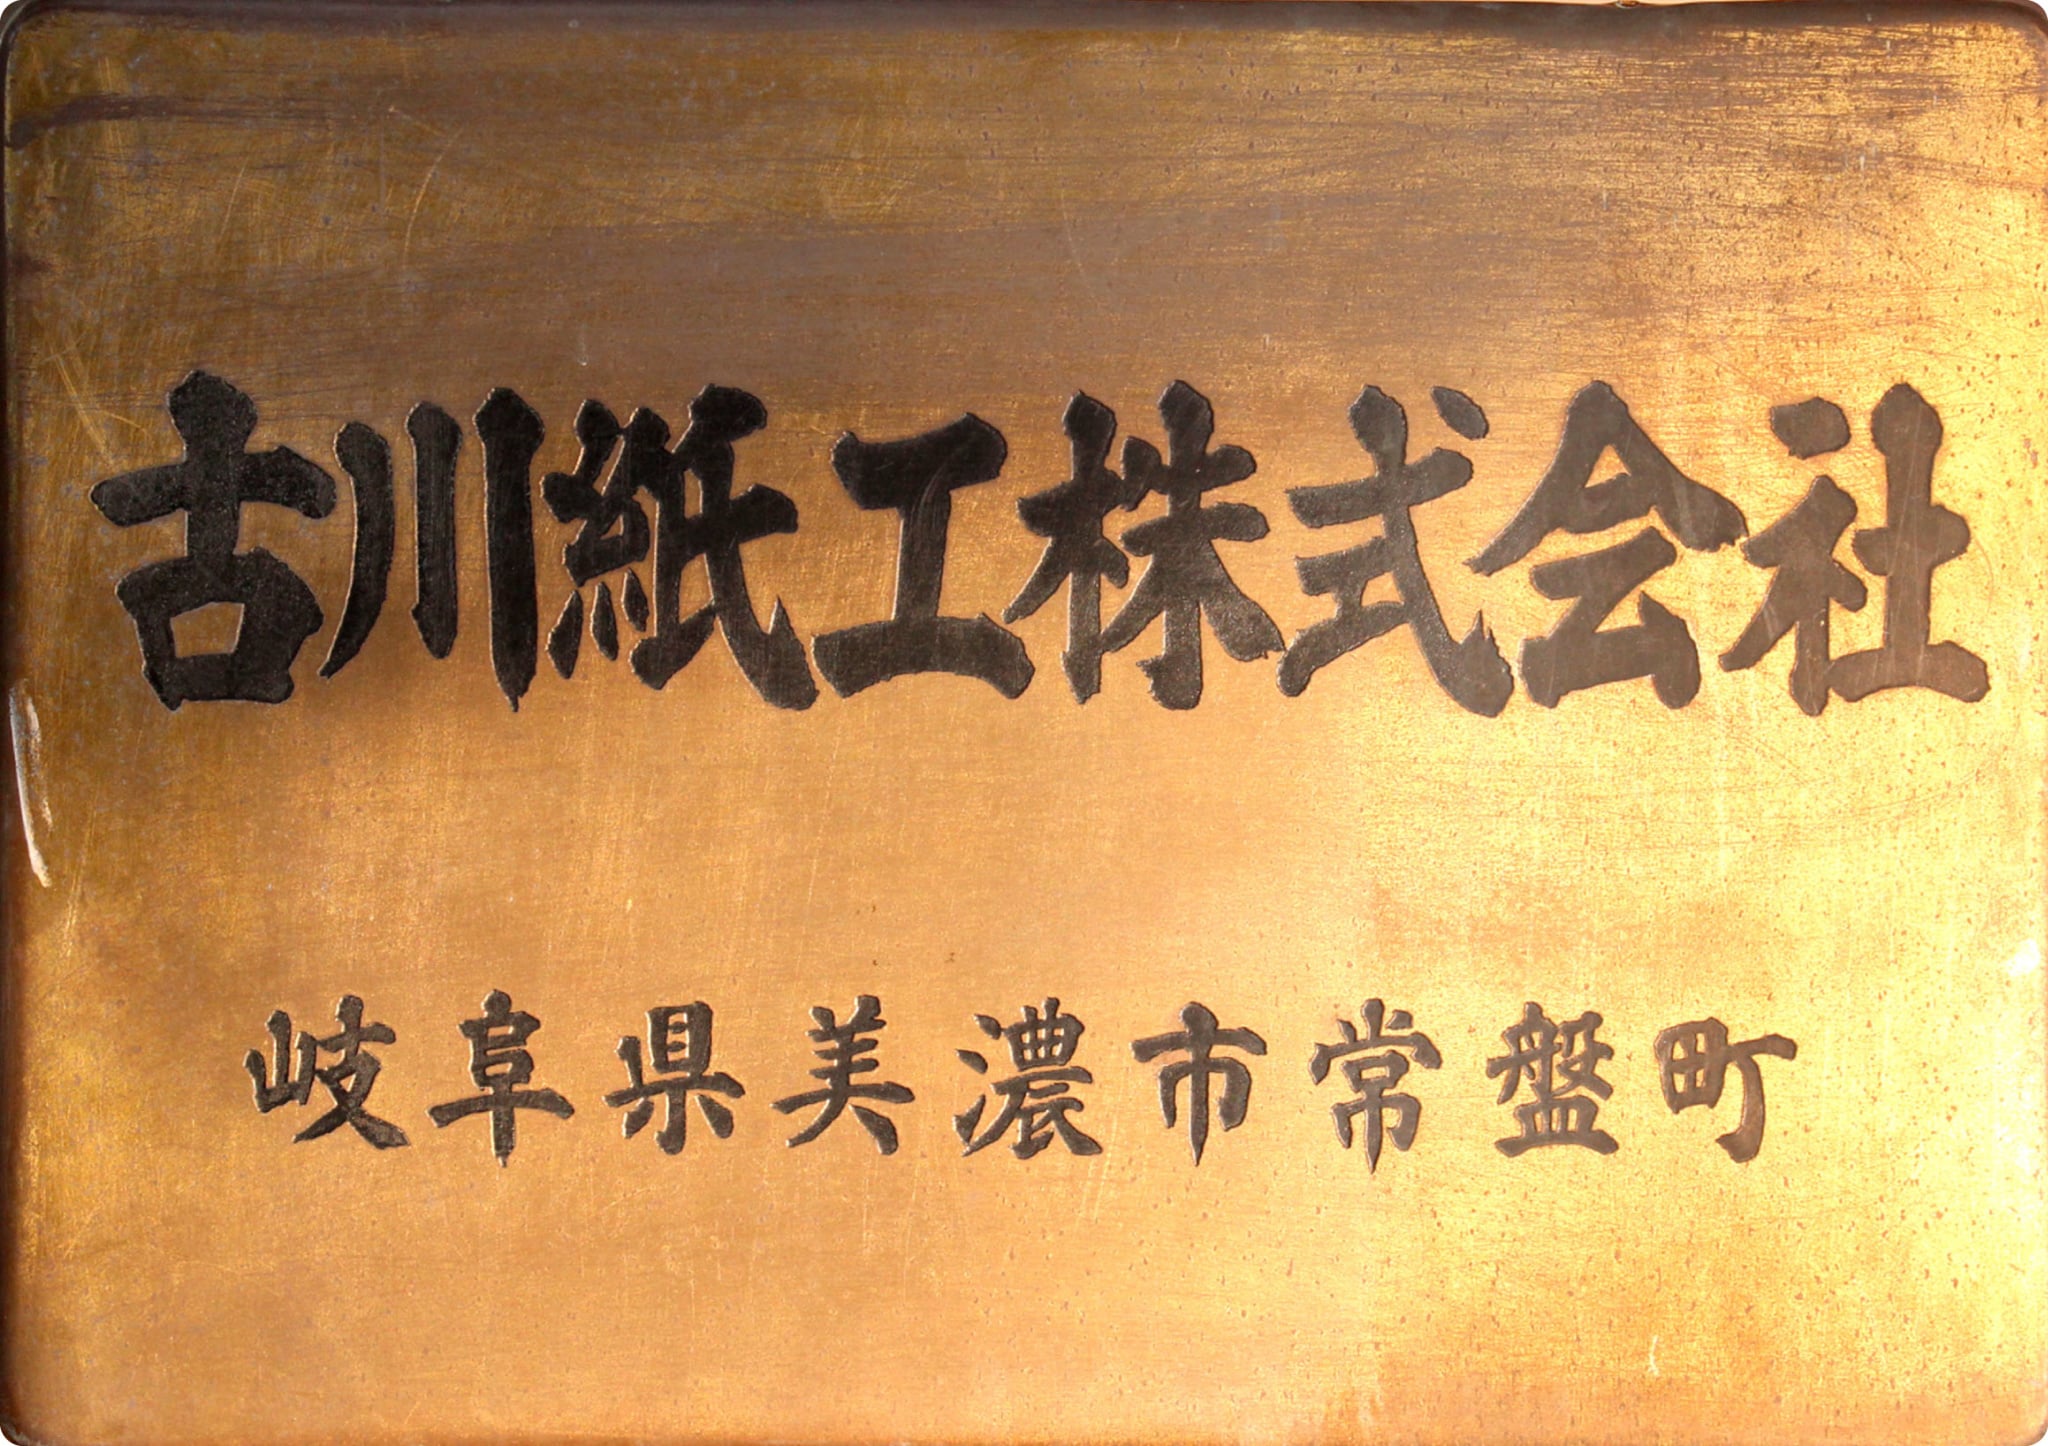 古川紙工株式会社
岐阜県美濃市常盤町